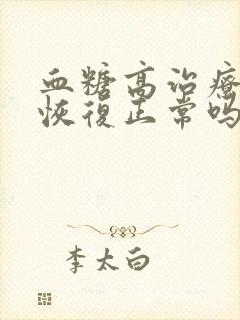 血糖高治療
恢復正常吗
李太白